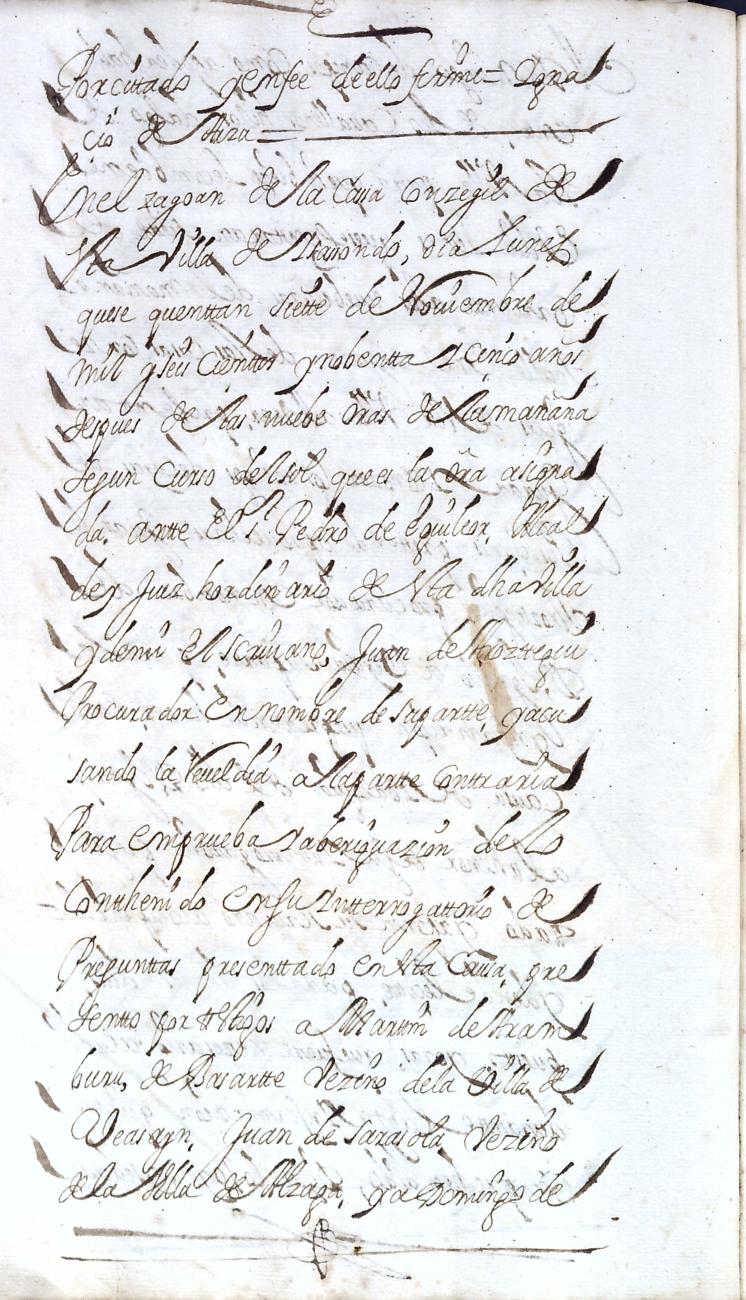 Por cittado y enfee de ello firme = Ygna
cio de Aliza =
En el zagoan de la Cassa Conzegil de
esta Villa de Ytasondo, dia Lunes
que se quenttan Siette de Noviembre de
mil y seis Cienttos y nobentta y cinco años
despues de las nuebe oras de la mañana
segun Curso del sol que es la ora asigna
da, antte El Sr. Pedro de eguileor, Alcal
de y Juez hordinario de esta dha villa
y de mi el scrivano, Juan de Aroztegui
Procurador en nombre de su partte, y acu
sando la Reveldia a la partte Contraria
Para em prueba y aberiguazion de lo
Conthenido en su Ynterrogattorio de
Pregunttas presenttado en esta Causa, pre
sentto por testigos a Martin de Aram
buru, de Basartte Vezino de la Villa de
Veasayn, Juan de sarasola Vezino
de la Villa de Alzaga, y a Domingo de